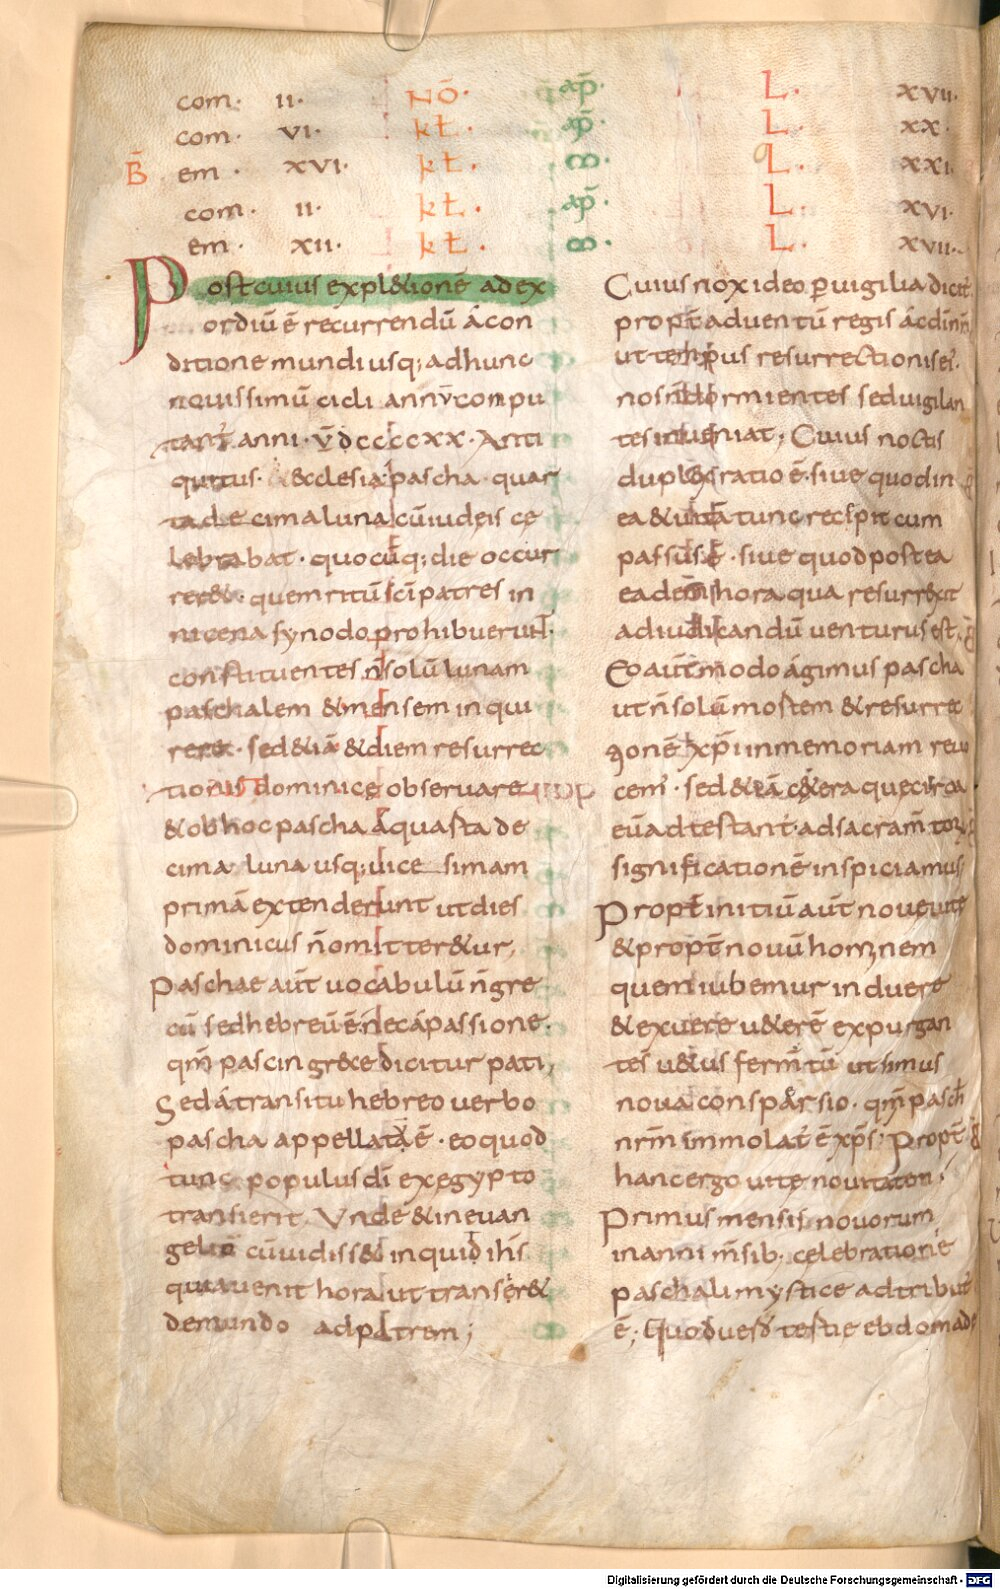 com · II · NO̅ · ap̅ · L · XVII ·
com · VI · kł · ap̅ · L · XX ·
B̅ em · XVI · kł · L · XXI ·
com · II · kł · ap̅ · L · XVI ·
em · XII · kł · L · XVII ·
Post cuius expl&ione̅ ad ex
ordiu̅ e̅ recurrendu̅ á con
ditione mundi usq; ad hunc
nouissimu̅ cicli conpu
anni · V̅DCCCCXX · Anti
quitus · &clesia pascha quar
ta decima luna cu̅ iudeis ce
lebrabat · quocu̅q; die occur
quem ritu̅ sc̅i patres in
nicena synodo prohibuerunt ·
constituentes n̅ solu̅ lunam
paschalem & mensem inqui
sed &ia̅ & diem resurrec
tionis dominice obseruare
& ob hoc pascha á quarta de
cima luna usq; uice simam
prima̅ extenderunt ut dies
dominicus n̅ omitter&ur,
Paschae aut̅ uocabulu̅ n̅ gre
cu̅ sed hebreu̅ e̅ nec á passione ·
qm̅ pascin gr&ce dicitur pati,
Sed á transitu hebreo uerbo
pascha appellata̅ e̅ · eo quod
tunc populus di̅ ex egypto
transierit Vnde & in euan
gelio cu̅ uidiss& inquid ih̅s
quia uenit hora ut transer&
de mundo ad patrem;
Cuius nox ideo p̲uigilia dicit̅
propt̅ aduentu̅ regis ác di̅ nr̅i
ut tempus resurrectionis ei'
nos non dormientes sed uigilan
tes inueniat; Cuius noctis
duplex ratio e̅ · siue quod in
ea & uita̅ tunc recipit cum
passus e̅ · siue quod postea
eade̅ hora qua resurrexit
ad iudicandu̅ uenturus est,
Eo aute̅ modo ágimus pascha
ut n̅ solu̅ mortem & resurrec
xp̅i in memoriam reuo
cem' · sed &ia̅ c&era que circa
eu̅ adtestant̅ · ad sacram̅torum
significatione̅ inspiciamus
Propt̅ initiu̅ aut̅ noue uite
& propt̅ nouu̅ hominem
quem iubemur induere
& exuere u&ere̅ expurgan
tes u&us ferm̅tu̅ ut simus
noua conspársio · qm̅ pasch
nr̅m immolat' e̅ xp̅s; Propt̅
hanc ergo uite nouitatem;
Primus mensis nouorum
in anni m̅sib; celebratione
paschali mystice adtribut'
e̅; Quod uero tertie ebdomade
Digitalisierung gefördert durch die Deutsche Forschungsgemeinschaft - DFG